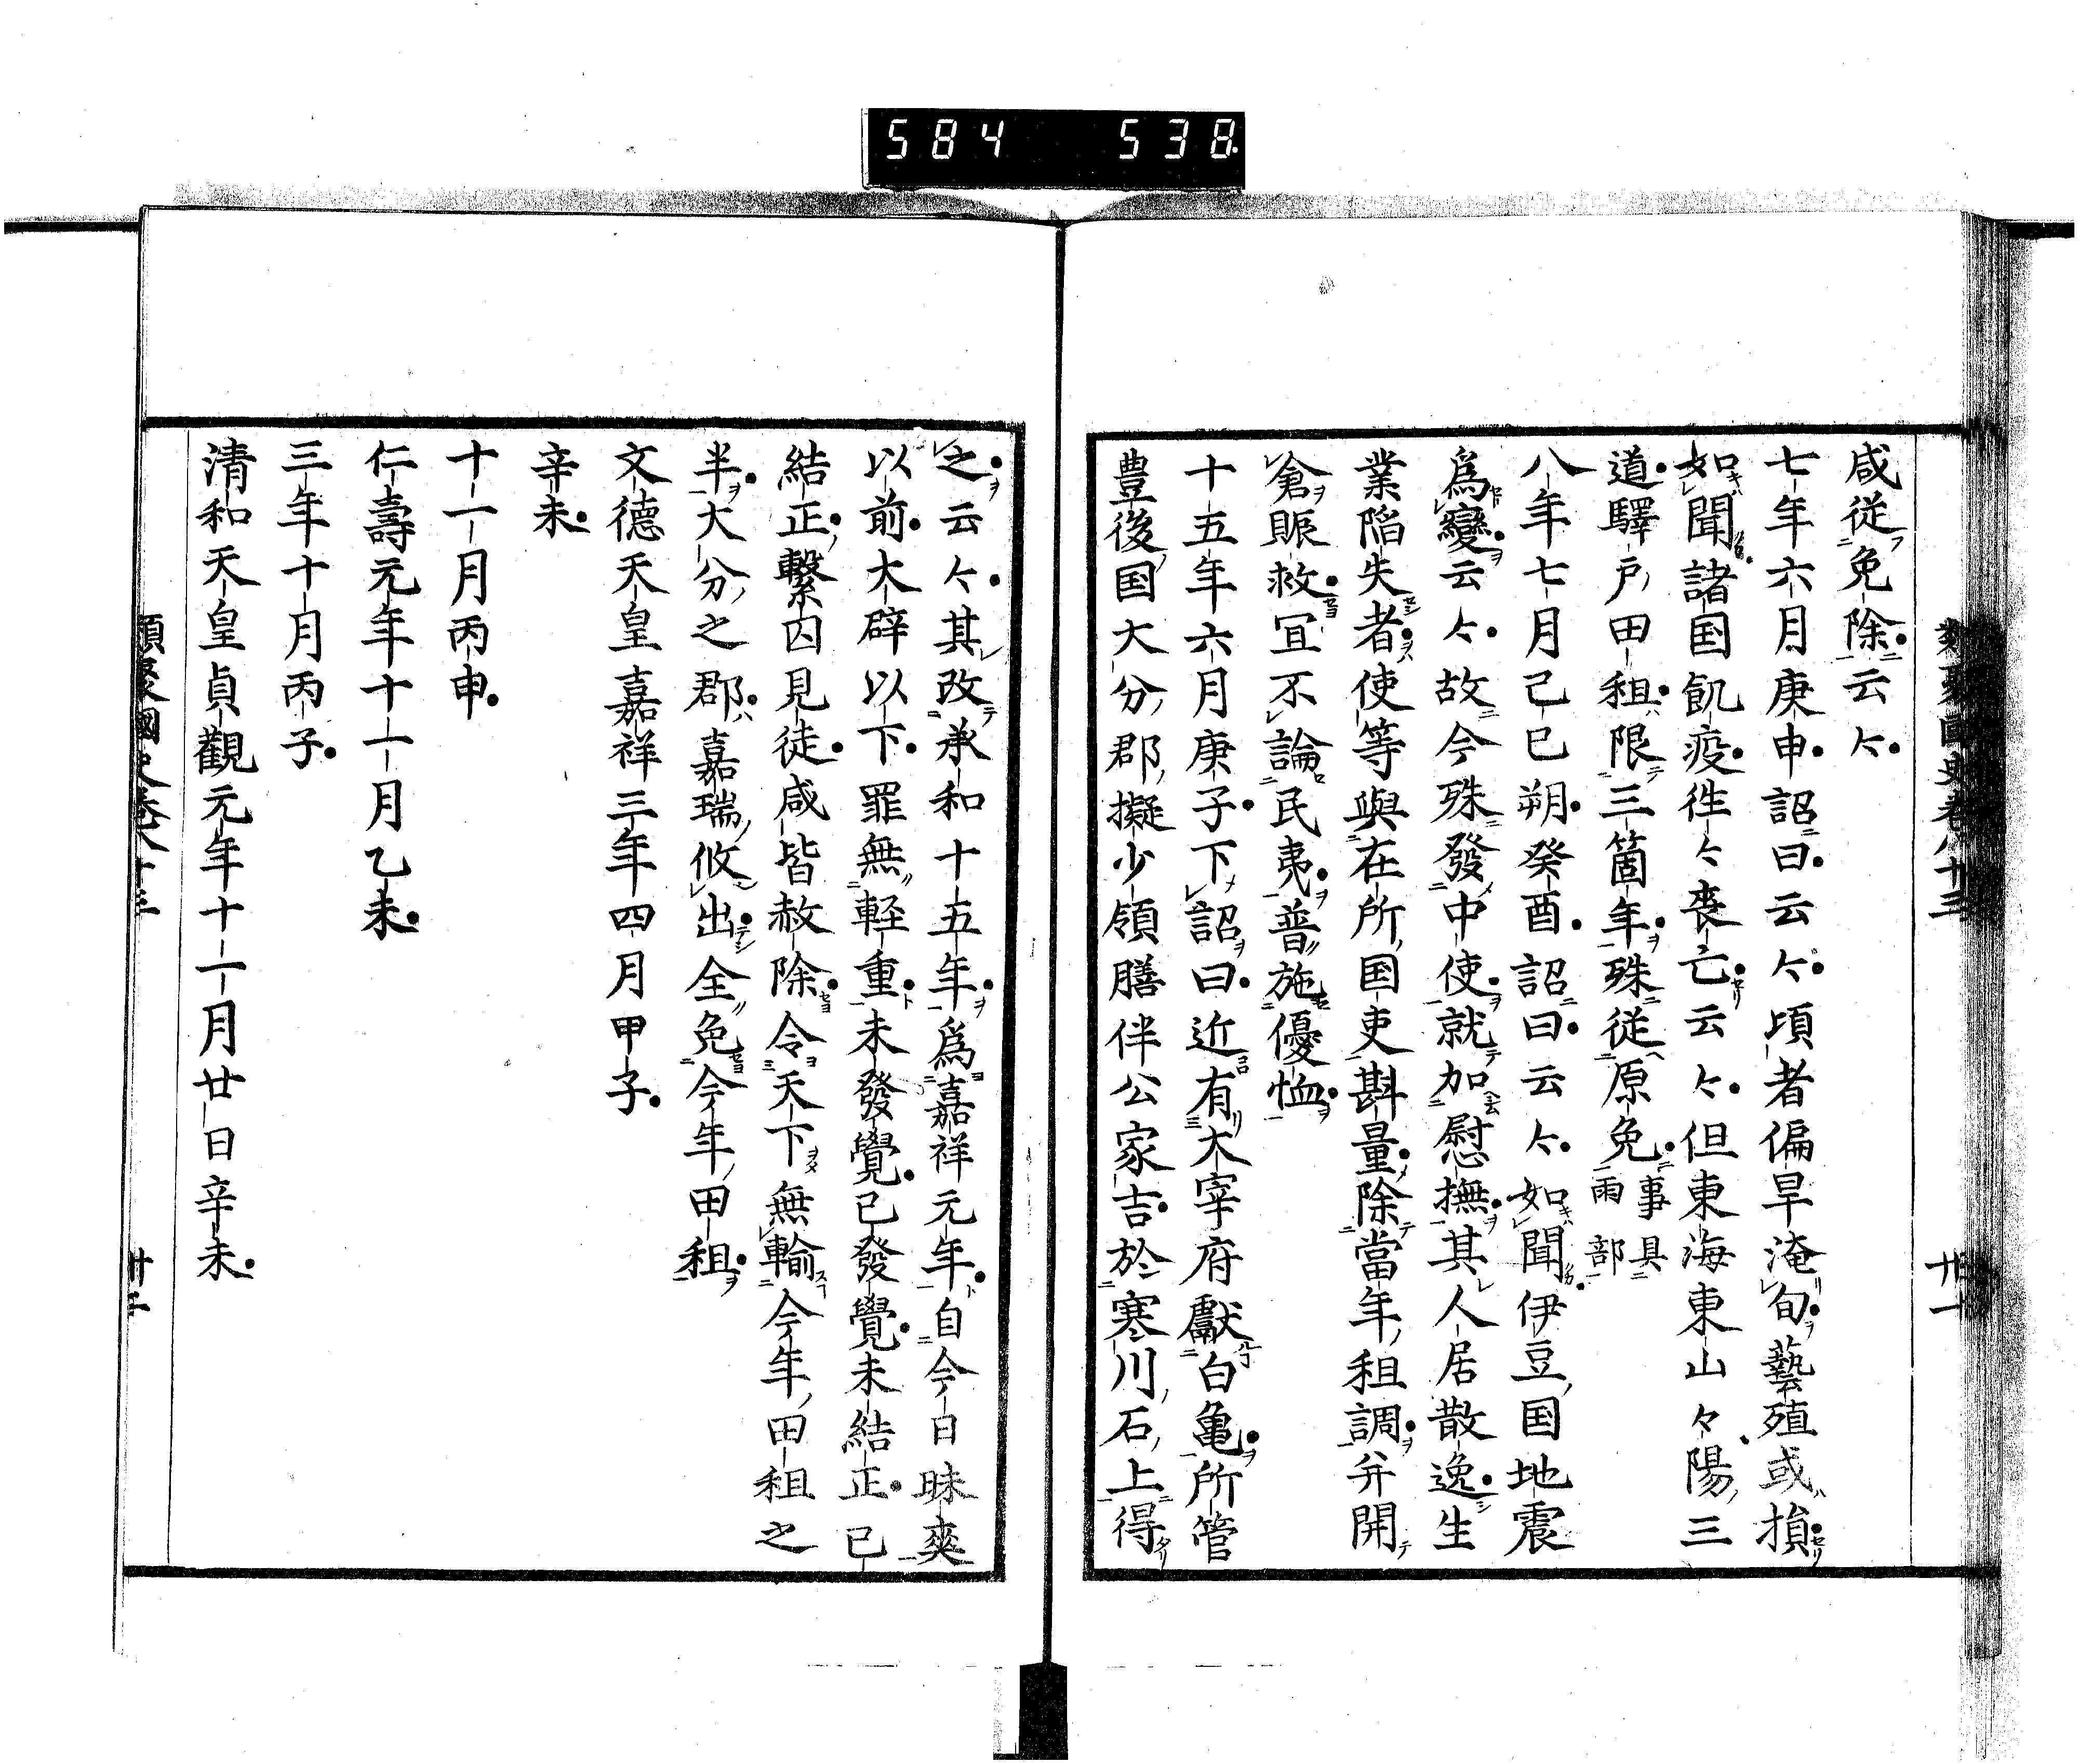 584 538
類聚國史卷八十三 廿一
咸従免除云々
七年六月庚申詔曰云々頃者偏旱淹旬藝殖或損
如聞諸国飢疫徃々喪亡云々但東海東山々陽三
道驛戸田租限三箇年殊従原免事具雨部
八年七月己巳朔癸酉詔曰云々如聞伊豆国地震
為變云々故今殊發中使就加慰撫其人居散逸生
業陷失者使等與在所国吏斟量除當年租調并開
倉賑救冝不論民夷普施優恤
十五年六月庚子下詔曰近有大宰府獻白亀所管
豊後国大分郡擬少領膳伴公家吉於寒川石上得
之云々其改承和十五年為嘉祥元年自今日昧爽
以前大辟以下罪無軽重未發覺已發覺未結正已
結正繋囚見徒咸皆赦除令天下無輸今年田租之
半大分之郡嘉瑞攸出全免今年田租
文德天皇嘉祥三年四月甲子
辛未
十一月丙申
仁壽元年十一月乙未
三年十月丙子
清和天皇貞觀元年十一月廿日辛未
類聚國史卷八十三 廿二